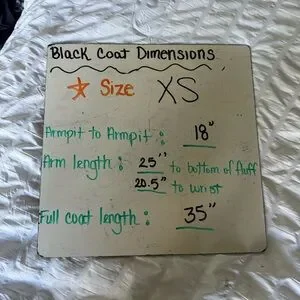 Black Coat Dimensions
Size XS
Armpit to Armpit : 18"
Arm length : 25" to bottom of fluff
20.5" to wrist
Full coat length : 35"